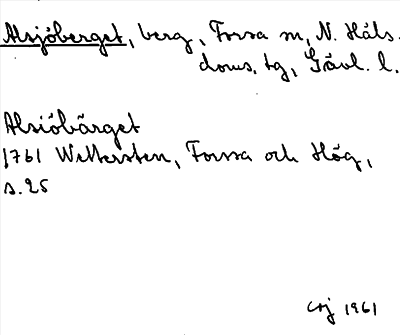 Alsjöberget, berg, Forsa sn, N. Häls.
doms. tg, Gävl. l.
Alsiöbärget
1761 Wettersten, Forssa och Hög,
s. 25
CEJ 1961